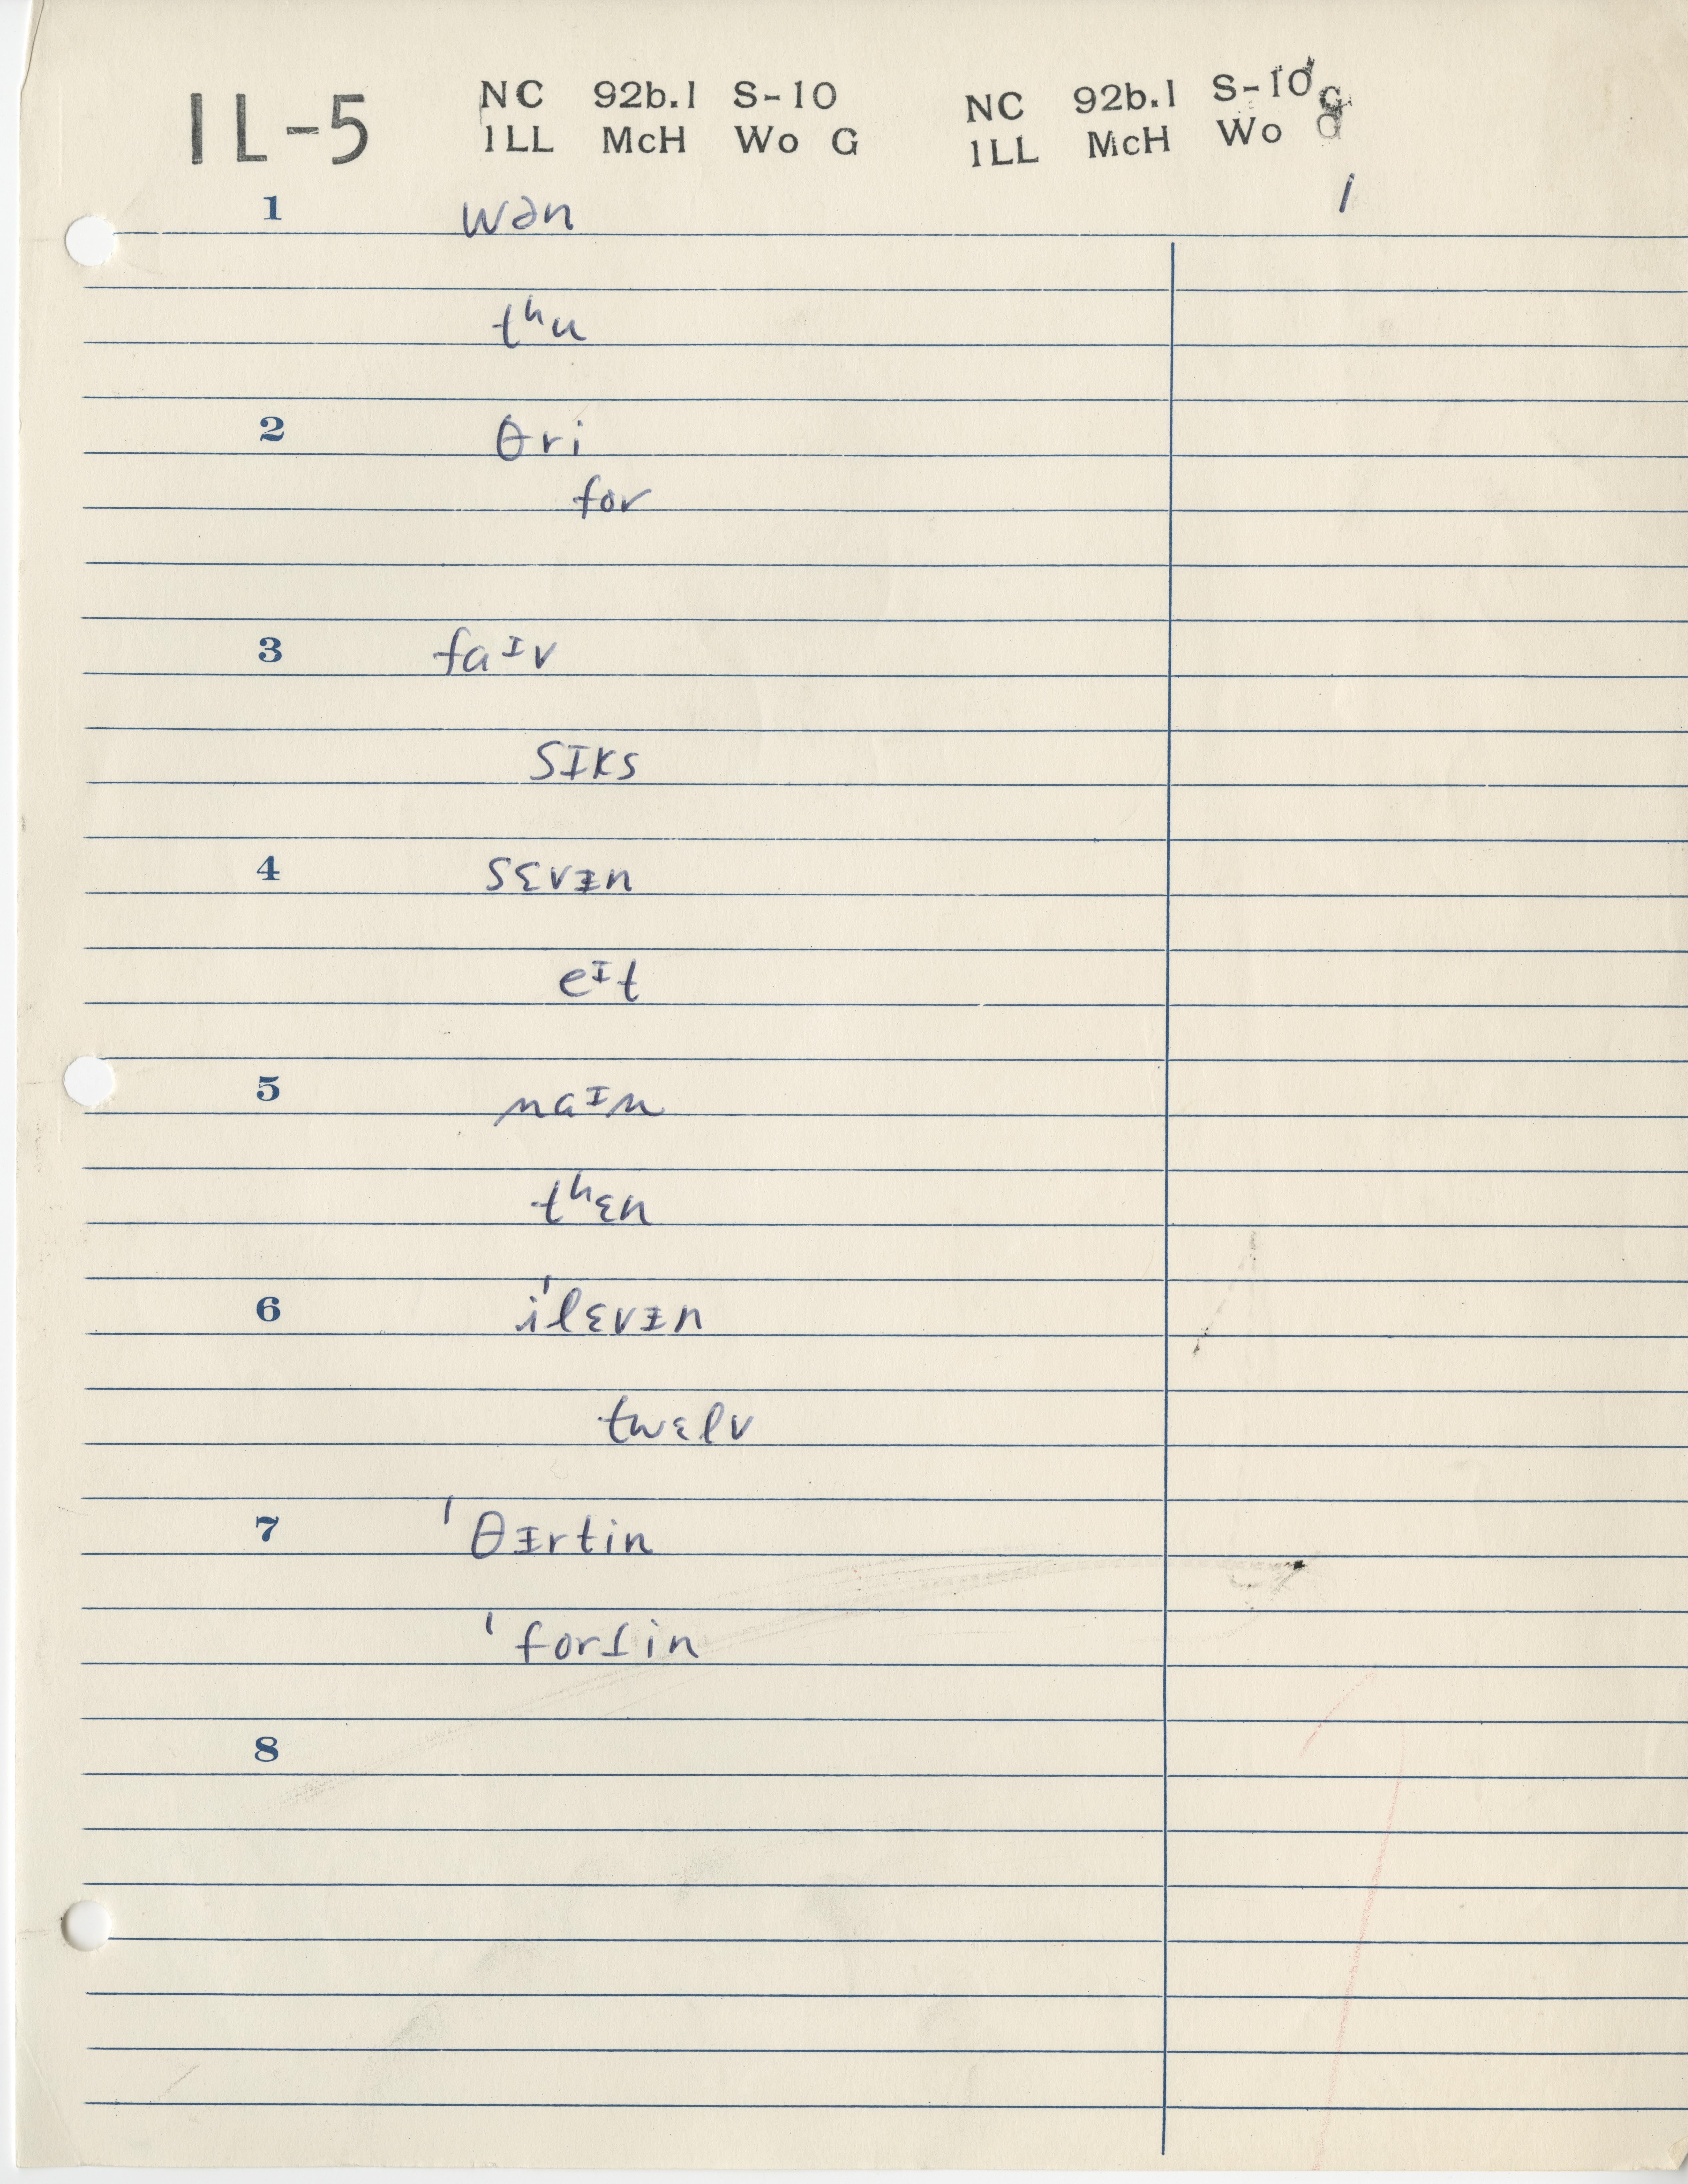 IL-5 NC 92b.1 S-10 NC 92b.1 S-10 G
ILL McH Wo G ILL McH Wo G
1
1 wən
tʰu
2 θri
for
3 faᴵv
sɪks
4 sɛvᵻn
eᴵt
5 naᴵn
tʰɛn
6 i'lɛvᵻn
twɛlv
7 'θᵻrtin
'forſin
8